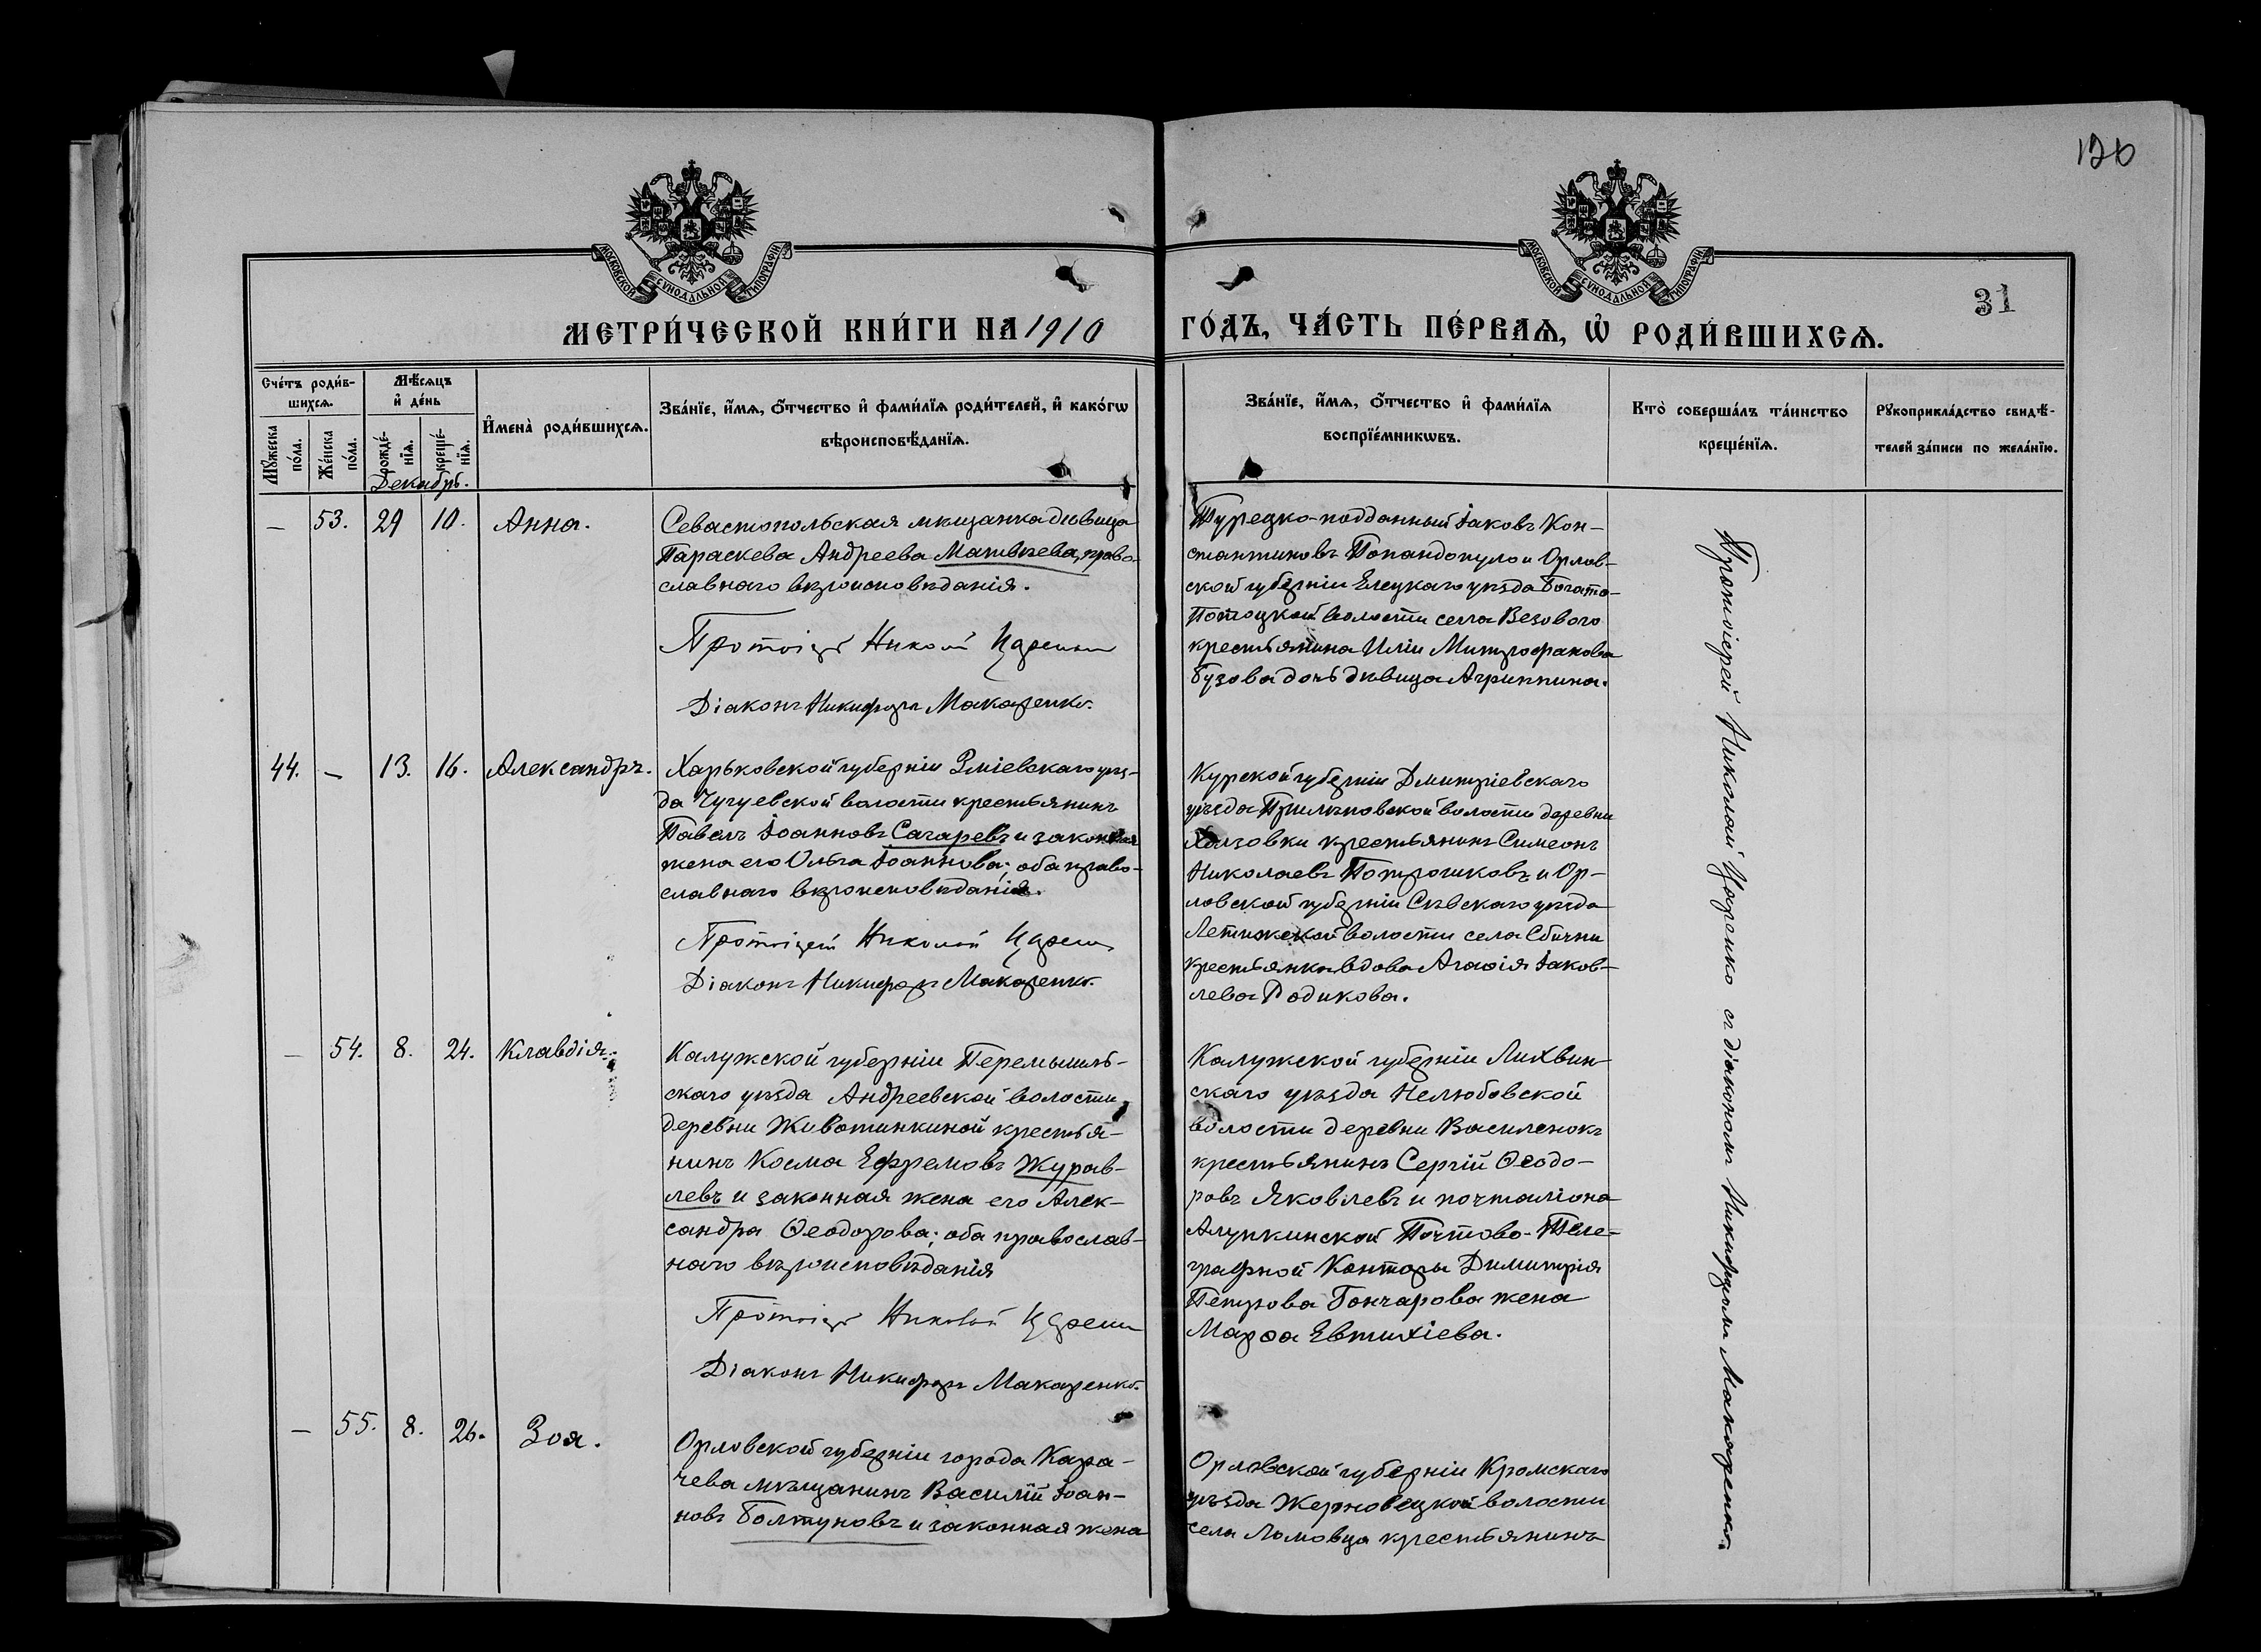 120
МОСКОВСКОЙ СѴНОДАЛЬНОЙ ТИПОГРАФІИ
МОСКОВСКОЙ СѴНОДАЛЬНОЙ ТИПОГРАФІИ
31
МЕТРИ́ЧЕСКОЙ КНИ́ГИ НА 1910
ГО́ДЪ, ЧА́СТЬ ПЕ́РВАѦ, Ѽ РОДИ́ВШИХСѦ.
Сче́тъ роди́в-
шихсѧ.
Мꙋжеска
по́ла.
Же́нска
по́ла.
Мѣ́сѧцъ
и҆ де́нь
рожде́-
нїѧ.
креще́-
нїѧ.
Декабрь.
И҆мена̀ роди́вшихсѧ.
Зва́нїе, и҆́мѧ, ѻ҆́тчество и҆ фами́лїѧ роди́телей, и҆ како́гѡ
вѣроисповѣ́данїѧ.
Зва́нїе, и҆́мѧ, ѻ҆́тчество и҆ фами́лїѧ
воспрїе́мникѡвъ.
Кто̀ соверша́лъ та́инство
креще́нїѧ.
Рꙋкоприкла́дство свидѣ́-
телей за́писи по жела́нїю.
— 53. 29 10. Анна.
Севастопольская мѣщанка дѣвица
Параскева Андреева Матвѣева, право-
славнаго вѣроисповѣданія.
Протоіер Николай Царенко
Діаконъ Никифоръ Макаренко.
Турецко-подданный Іаковъ Кон-
стантиновъ Попандопуло и Орлов-
ской губерніи Елецкаго уѣзда Богато-
Потоцкой волости села Везового
крестьянина Иліи Митрофанова
Бузова дочь дѣвица Агриппина.
44. — 13. 16. Александръ.
Харьковской губерніи Зміевскаго уѣз-
да Чугуевской волости крестьянинъ
Павелъ Іоанновъ Сагаревъ и законная
жена его Ольга Іоаннова; оба право-
славнаго вѣроисповѣданія.
Протоіерей Николай Царенко
Діаконъ Никифоръ Макаренко.
Курской губерніи Дмитріевскаго
уѣзда волости деревни
крестьянинъ Симеонъ
Николаевъ и Ор-
ловской губерніи Сѣвскаго уѣзда
волости села
крестьянка вдова Агаѳія Іаков-
лева Родикова.
— 54. 8. 24. Клавдія.
Калужской губерніи Перемышль-
скаго уѣзда Андреевской волости,
деревни Животинкиной крестья-
нинъ Косма Ефремовъ Журав-
левъ и законная жена его Алек-
сандра Ѳеодорова; оба православ-
наго вѣроисповѣданія
Протоіер Николай Царенко
Діаконъ Никифоръ Макаренко.
Калужской губерніи Лихвин-
скаго уѣзда Нелюбовской
волости деревни Василенокъ
крестьянинъ Сергій Ѳеодо-
ровъ Яковлевъ и почталіона
Алупкинской Почтово-Теле-
графной Конторы Димитрія
Петрова Гончарова жена
Марѳа Евтихіева.
— 55. 8. 26. Зоя.
Орловской губерніи города Кара-
чева мѣщанинъ Василій Іоан-
новъ Болтуновъ и законная жена
Орловской губерніи Кромскаго
уѣзда Жерновецкой волости
села Ломовца крестьянинъ
Протоіерей Николай Царенко съ діакономъ Никифоромъ Макаренко.